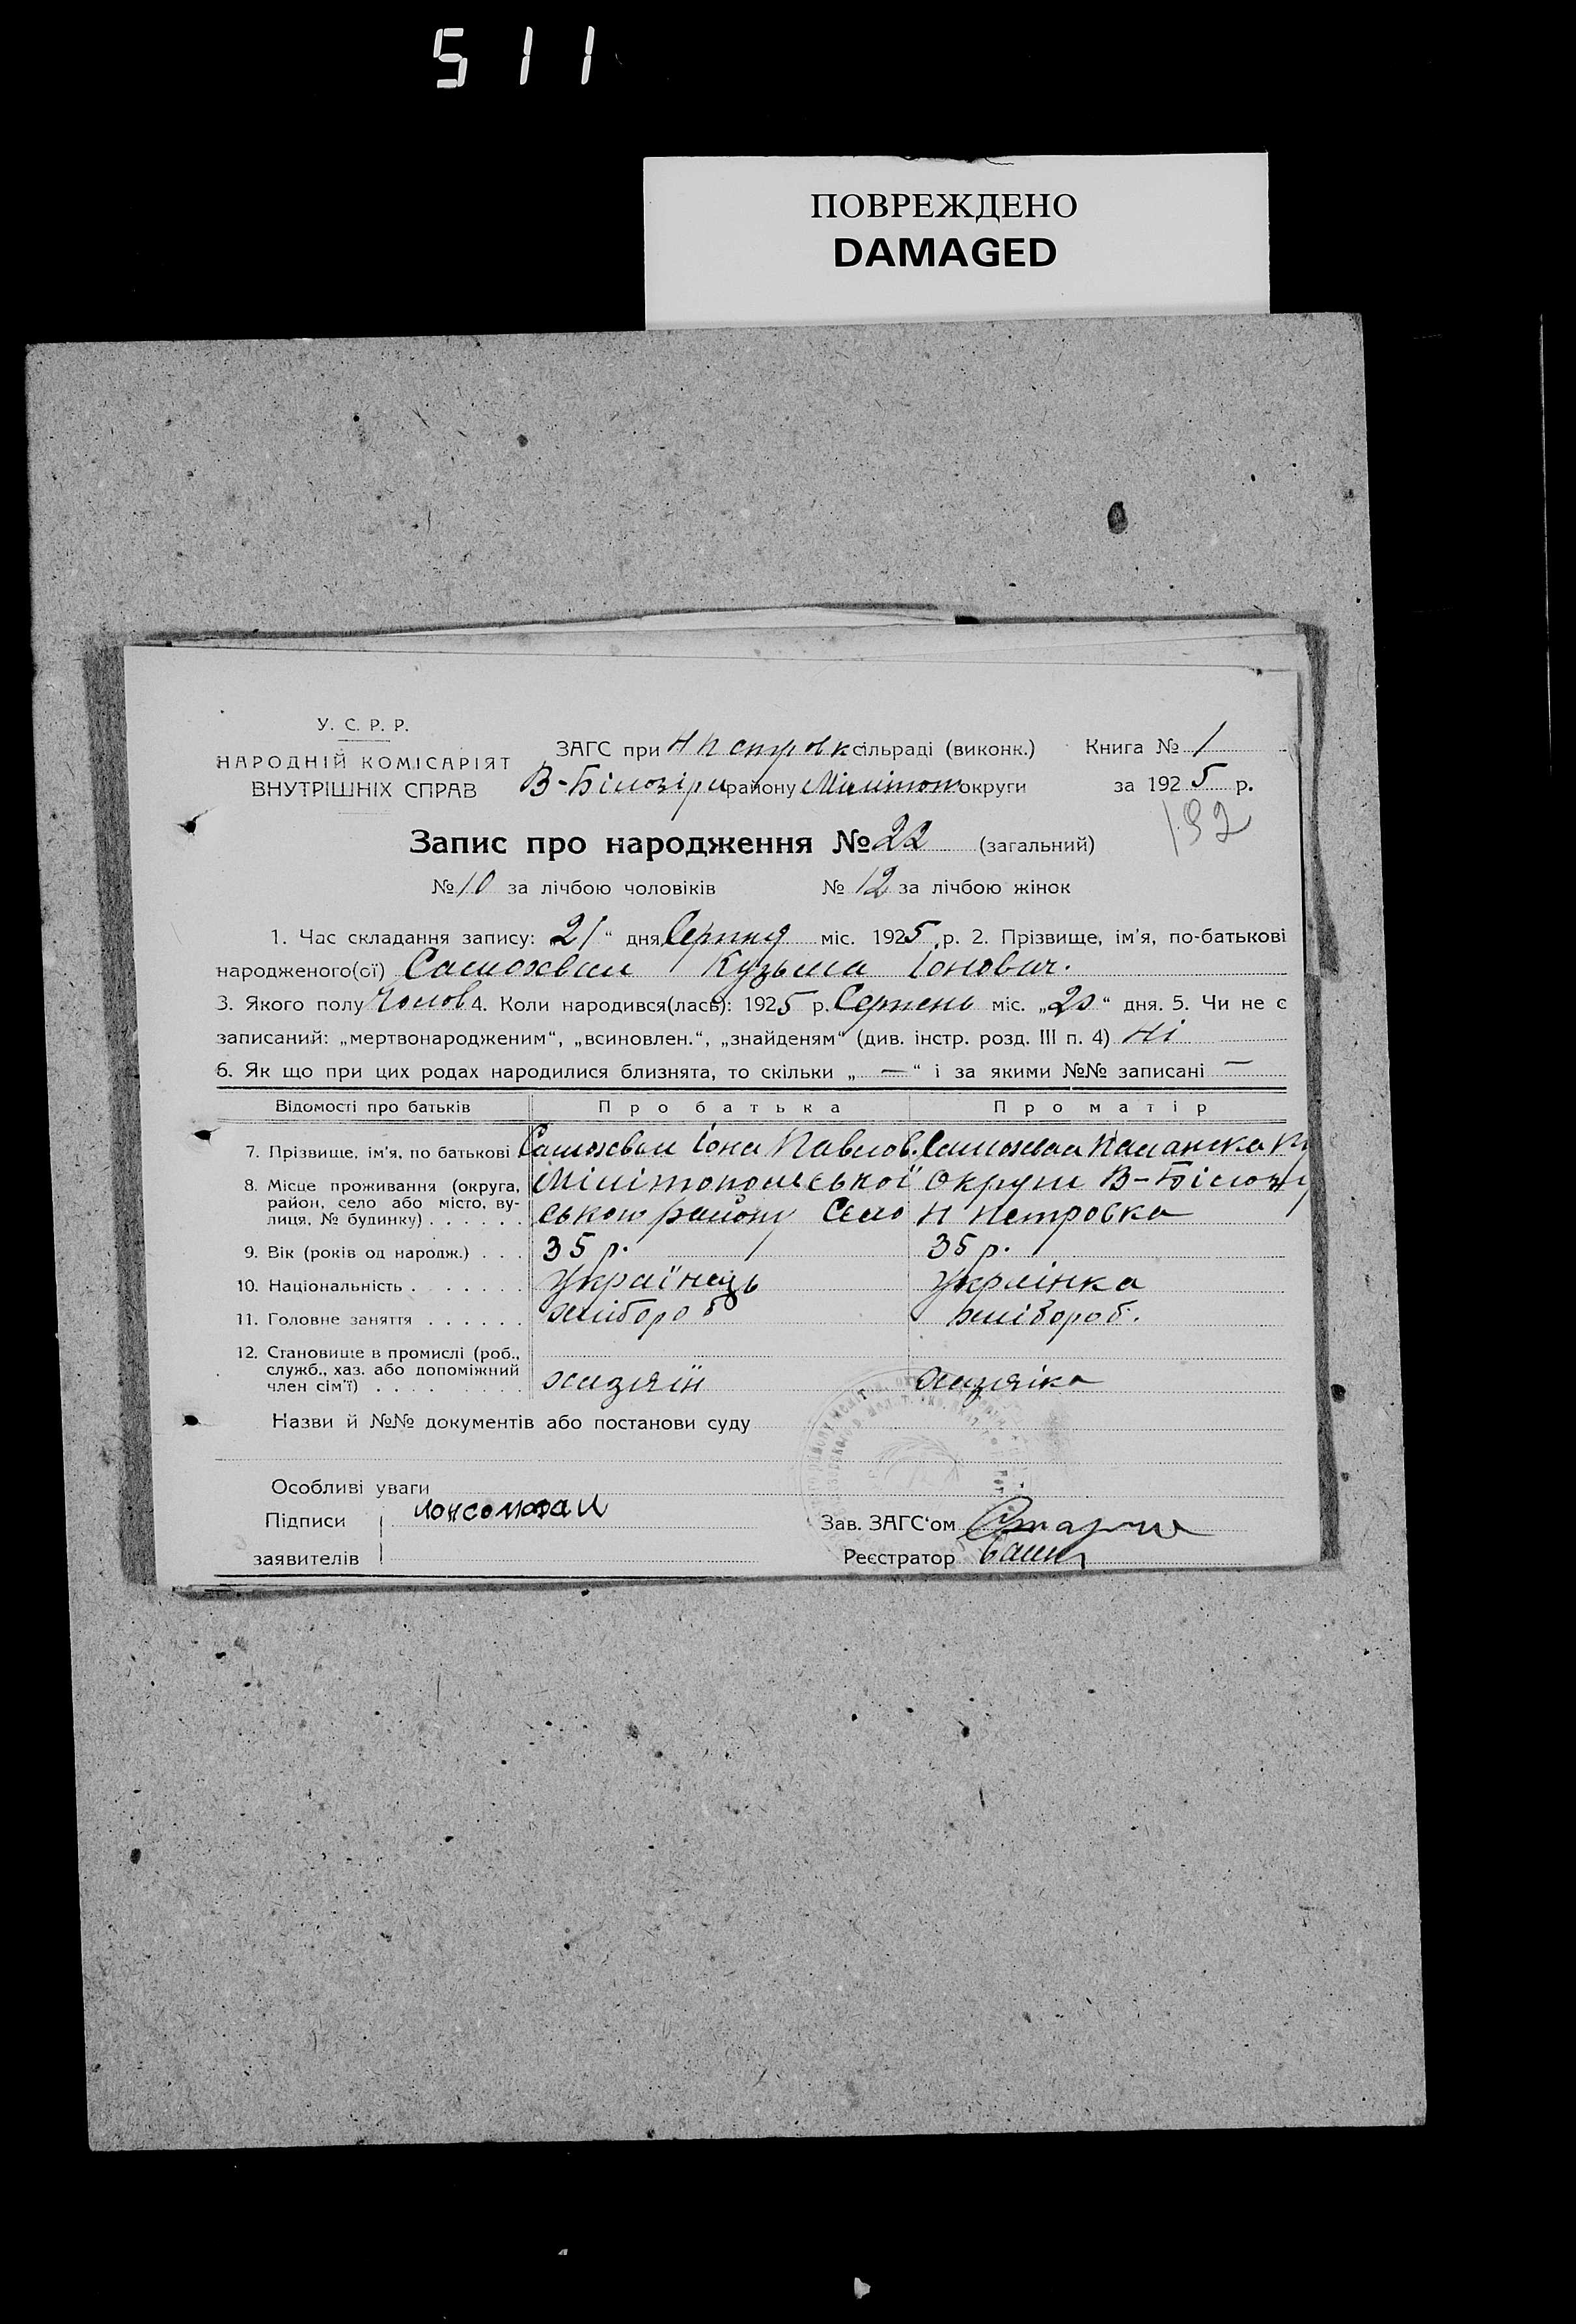 511
ПОВРЕЖДЕНО
DAMAGED
У. С. Р. Р.
НАРОДНІЙ КОМІСАРІЯТ
ВНУТРІШНІХ СПРАВ
ЗАГС при Н Петровк сільраді (виконк.) Книга № 1
В-Білозіри району Мілітоп округи за 1925 р.
192
Запис про народження № 22 (загальний)
№ 10 за лічбою чоловіків № 12 за лічбою жінок
1. Час складання запису: „21“ дня Серпня міс. 1925 р. 2. Прізвище, ім'я, по-батькові
народженого(ої) Самохвал Кузьма Іонович.
3. Якого полу Чолов 4. Коли народився(лась): 1925 р. Серпень міс. „20“ дня. 5. Чи не є
записаний: „мертвонародженим“, „всиновлен.“, „знайденям“ (див. інстр. розд. III п. 4) Ні
6. Як що при цих родах народилися близнята, то скільки „ — “ і за якими №№ записані —
Відомості про батьків Про батька Про матір
7. Прізвище, ім'я, по батькові Самохвал Іона Павлов. Самохвал
8. Місце проживання (округа, район, село або місто, вулиця, № будинку) Мілітопольської округи В-Білозі
ського району Село Н Петровка
9. Вік (років од народж.) 35 р. 35 р.
10. Національність Українець Українка
11. Головне заняття хлібороб хлібороб.
12. Становище в промислі (роб.,
служб., хаз. або допоміжний
член сім'ї) хазяїн хазяіка
Назви й №№ документів або постанови суду
Особливі уваги
Підписи Зав. ЗАГС'ом
заявителів Реєстратор